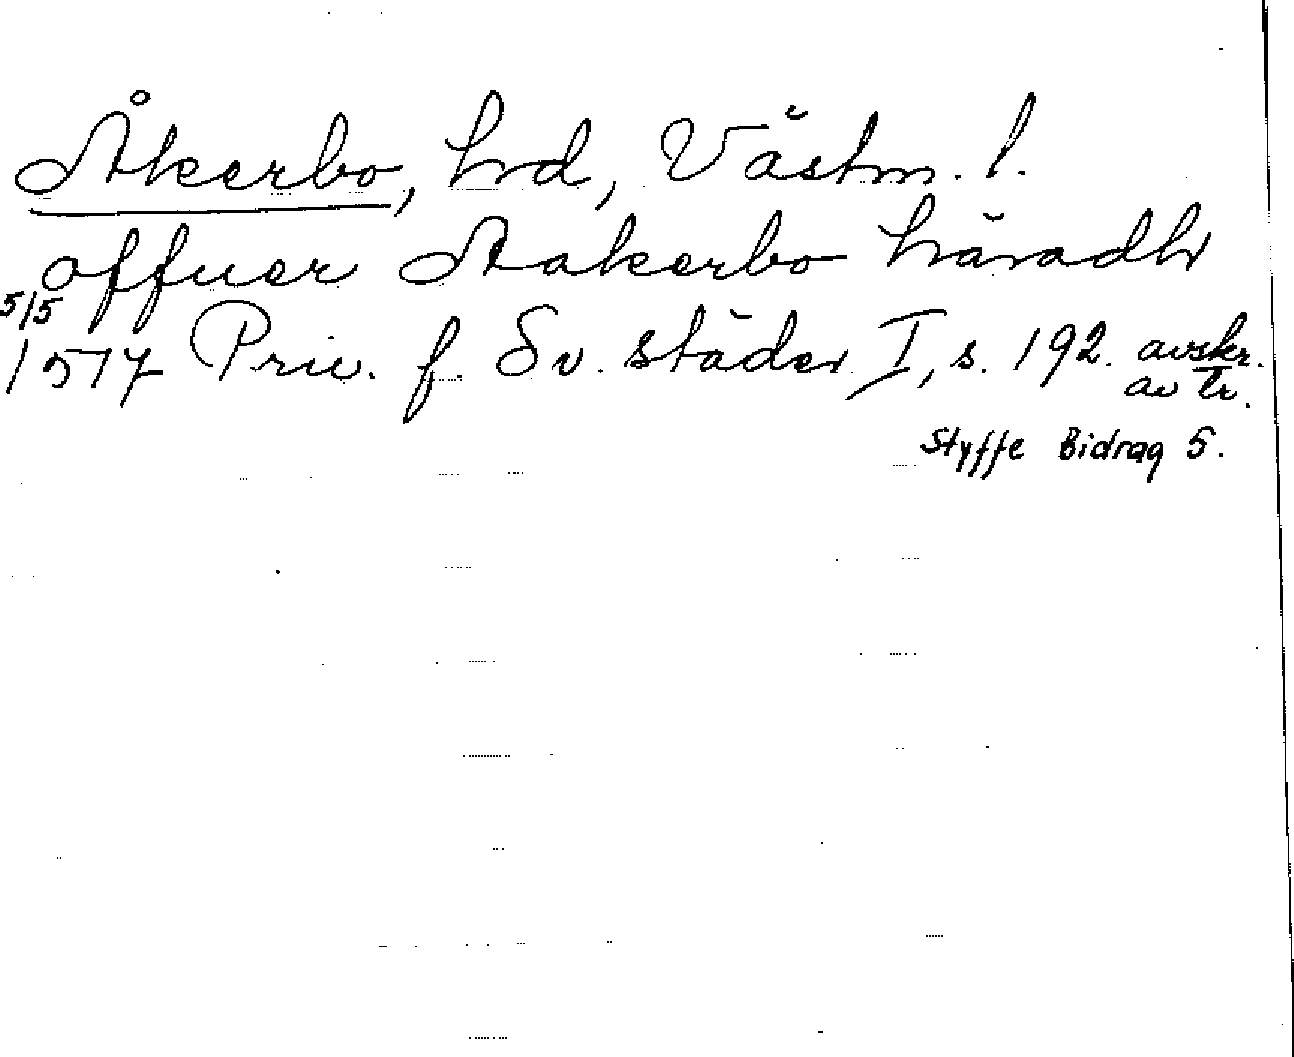 Åkerbo, hrd, Västm. l.
offuer Aakerbo häradh
5/5
1517 Priv. f Sv. städer I, s. 192. avskr.
av tr.
Styffe Bidrag 5.